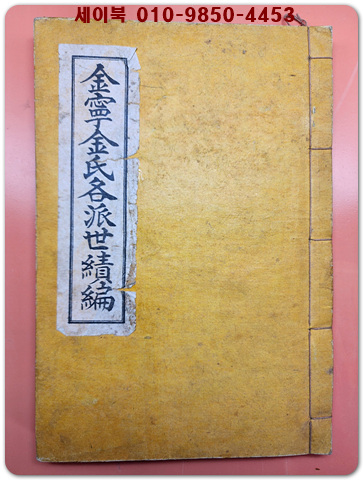 세이북 010-9850-4453
金寧金氏各派世績編